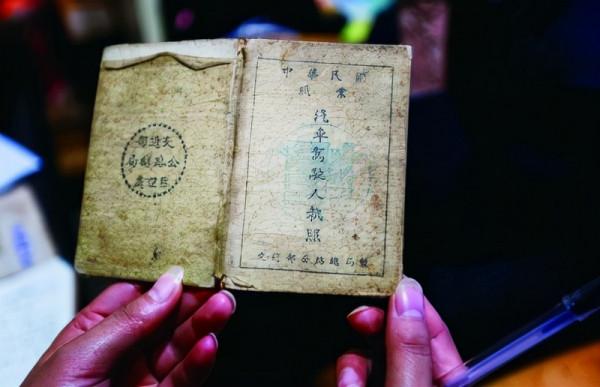 交通部
公路總局
中華民國
職業
汽車駕駛人執照
交通部公路總局製